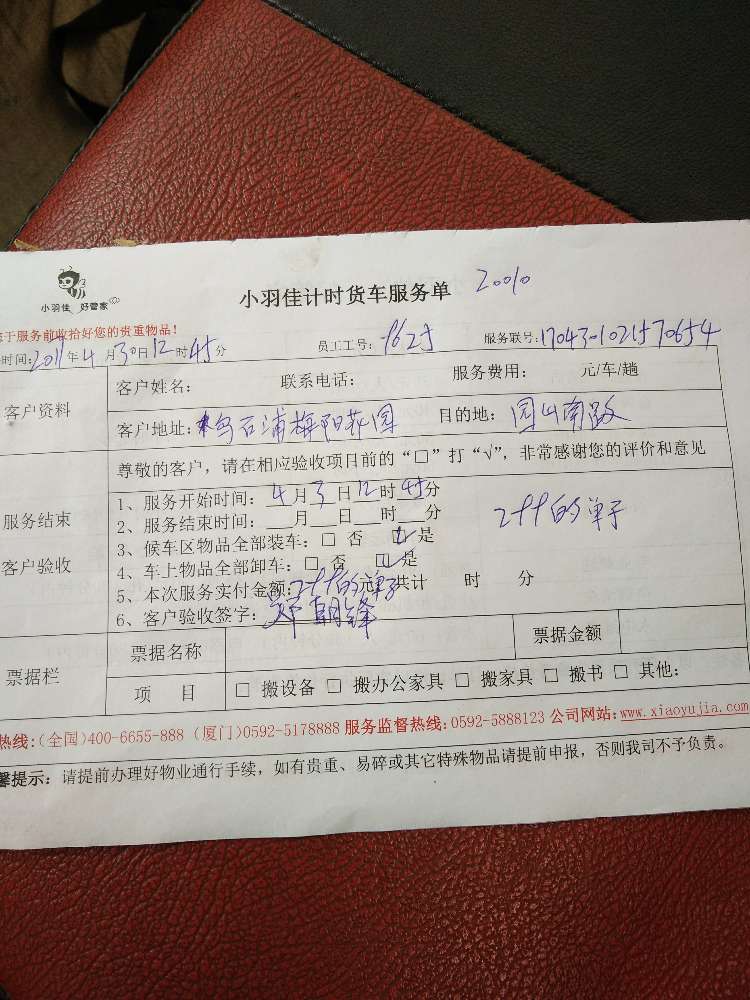 小羽佳 好管家
小羽佳计时货车服务单
于服务前收拾好您的贵重物品!
时间:2017年4月30日12时45分 员工工号: 服务联号:17043-1021570654
客户资料
客户姓名: 联系电话: 服务费用: 元/车/趟
客户地址: 乌石浦梅阳花园 目的地: 南路
尊敬的客户，请在相应验收项目前的“□”打“√”，非常感谢您的评价和意见
服务结束
客户验收
1、服务开始时间: 4月3日12时45分
2、服务结束时间: 月 日 时 分
3、候车区物品全部装车: □ 否 □是
4、车上物品全部卸车: □ 否 □是
的单子
5、本次服务实付金额: 的单子元,共计 时 分
6、客户验收签字: 朝锋
票据栏
票据名称 票据金额
项 目 □ 搬设备 □ 搬办公家具 □ 搬家具 □ 搬书 □ 其他:
热线:(全国)400-6655-888 (厦门)0592-5178888 服务监督热线:0592-5888123 公司网站:www.xiaoyujia.com
馨提示: 请提前办理好物业通行手续，如有贵重、易碎或其它特殊物品请提前申报，否则我司不予负责。